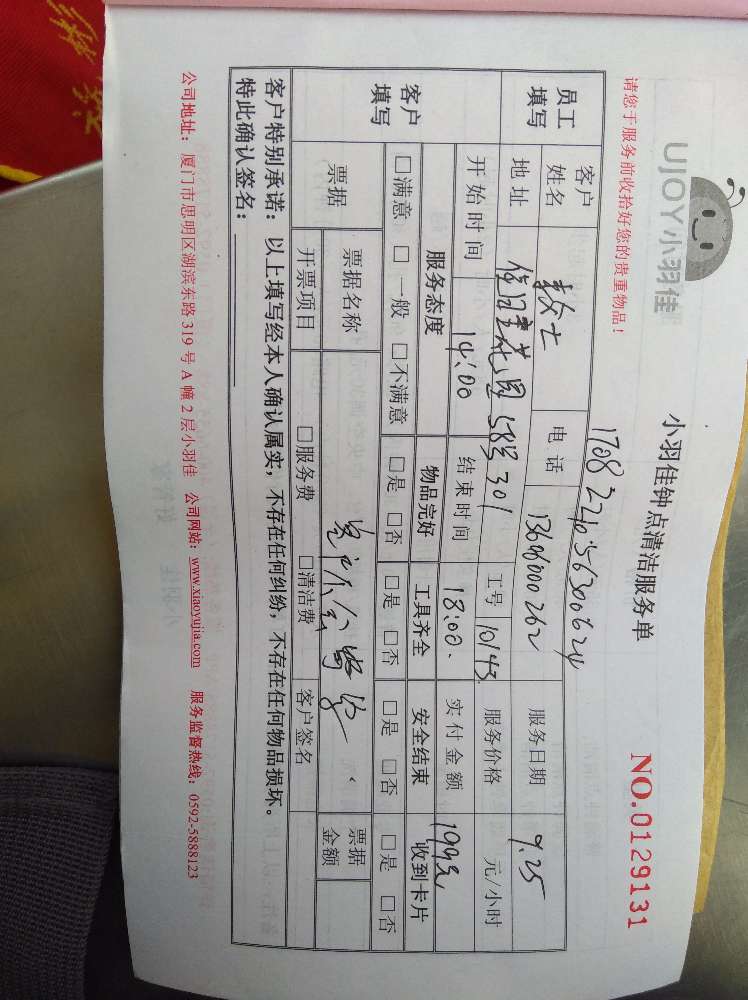 UJOY小羽佳
小羽佳钟点清洁服务单
NO.0129131
请您于服务前收拾好您的贵重物品！
1708221056300624
员工填写
客户姓名
女士
电话
13696000262
服务日期
9.25
地址
花园58号301
工号
10143
服务价格
元/小时
开始时间
14:00
结束时间
18:00.
实付金额
199元
客户填写
服务态度
物品完好
工具齐全
安全结束
收到卡片
□满意 □一般 □不满意
□是 □否
□是 □否
□是 □否
□是 □否
票据
票据名称
票据金额
开票项目
□服务费 □清洁费
客户签名
客户特别承诺：以上填写经本人确认属实，不存在任何纠纷，不存在任何物品损坏。
特此确认签名：
公司地址：厦门市思明区湖滨东路 319 号 A 幢 2 层小羽佳 公司网站：www.xiaoyujia.com 服务监督热线：0592-5888123